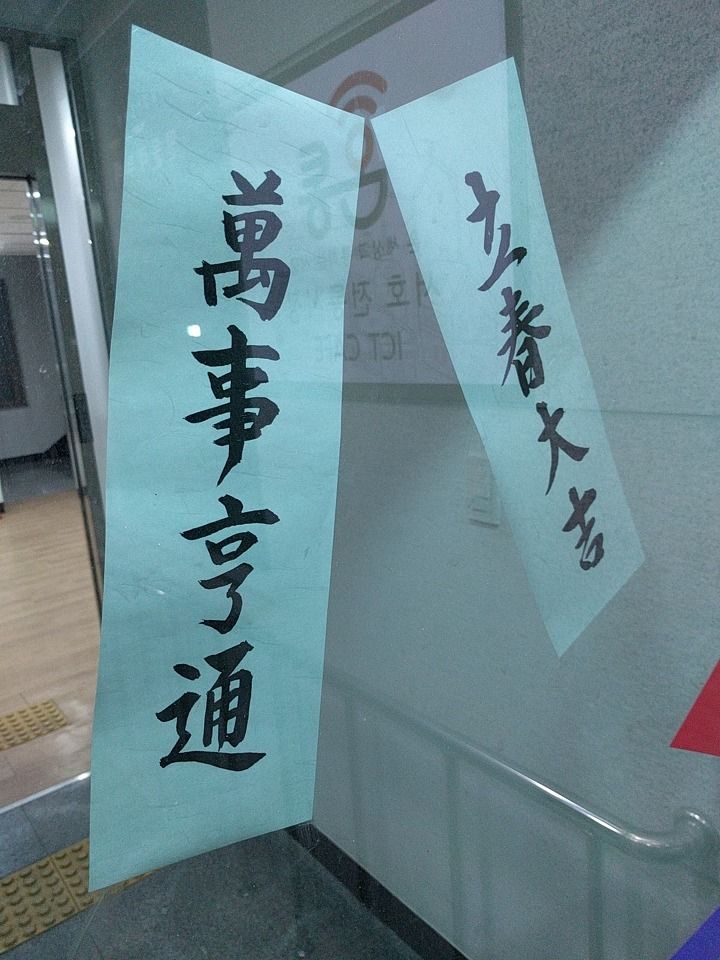 立春大吉
萬事亨通
통
ICT